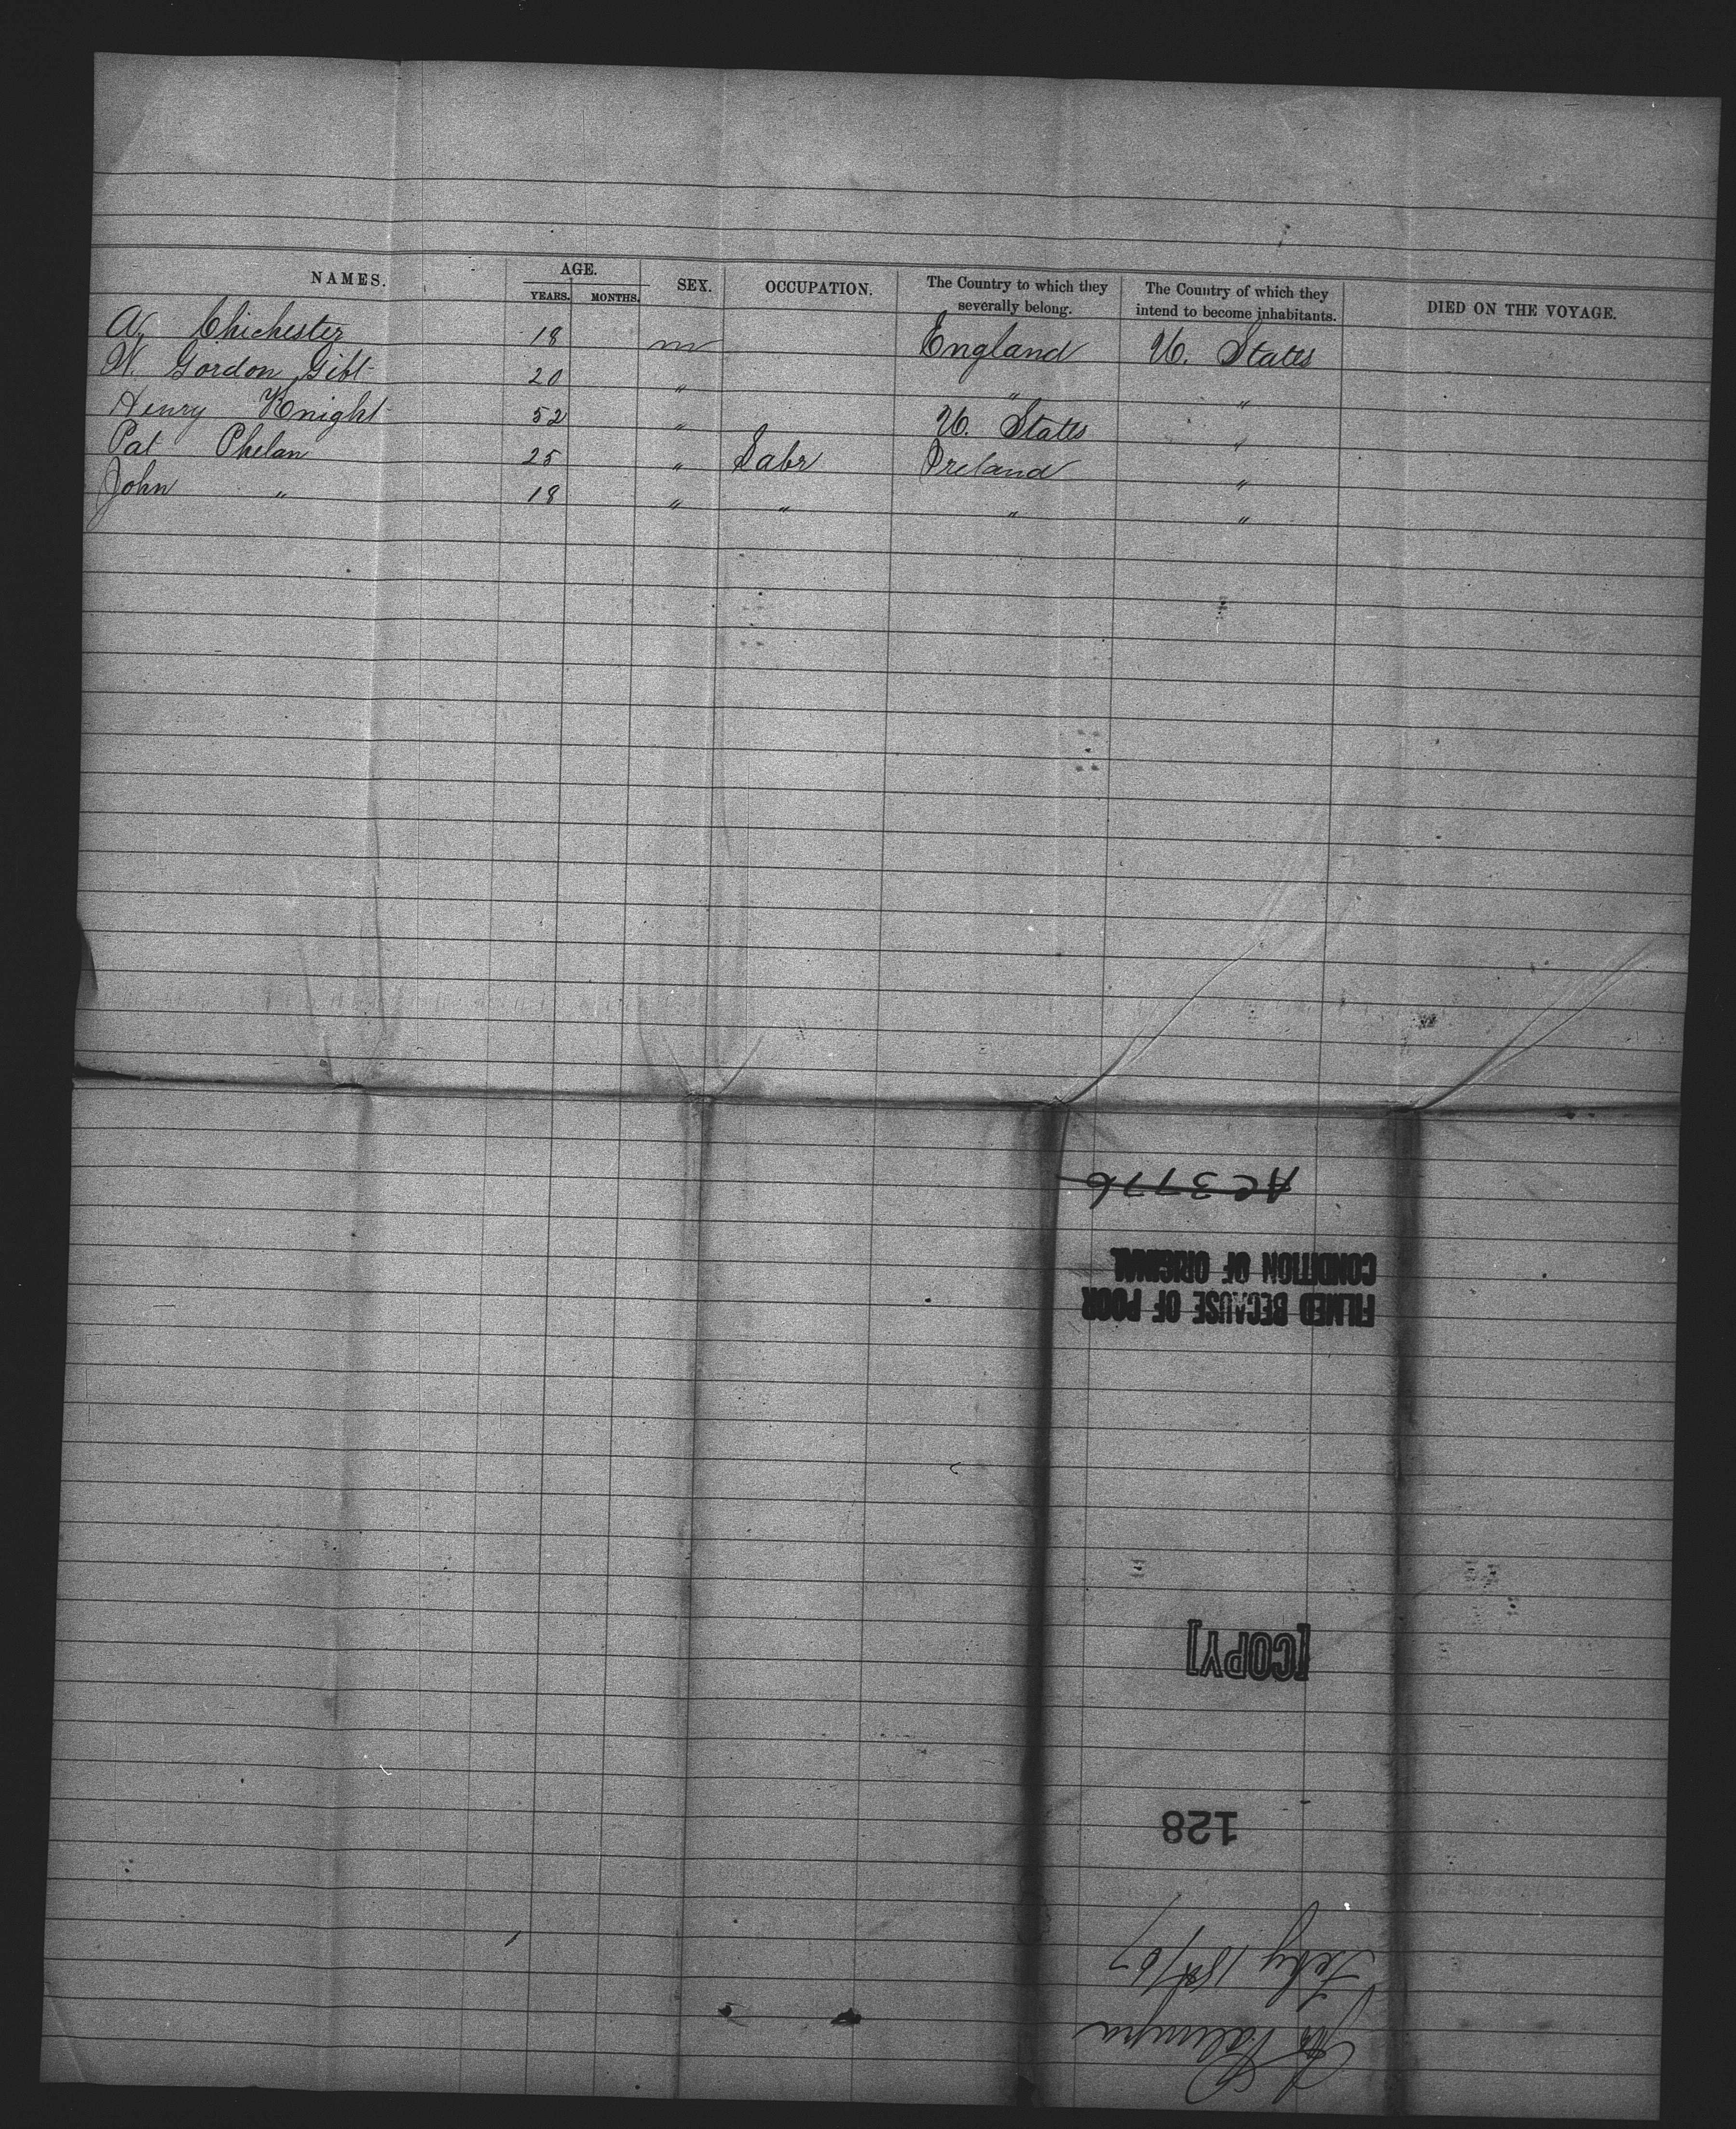 NAMES. AGE. SEX. OCCUPATION. The Country to which they severally belong. The Country of which they intend to become inhabitants. DIED ON THE VOYAGE.
YEARS. MONTHS.
A. Chichester 18 m England U. States
W. Gordon Gibt 20 " " "
Henry Knight 52 " U. States "
Pat Phelan 25 " Labr Ireland "
John " 18 " " " "
AC 3776
FILMED BECAUSE OF POOR
CONDITION OF ORIGINAL
[COPY]
128
Str Palmyra
Feby 18th/67